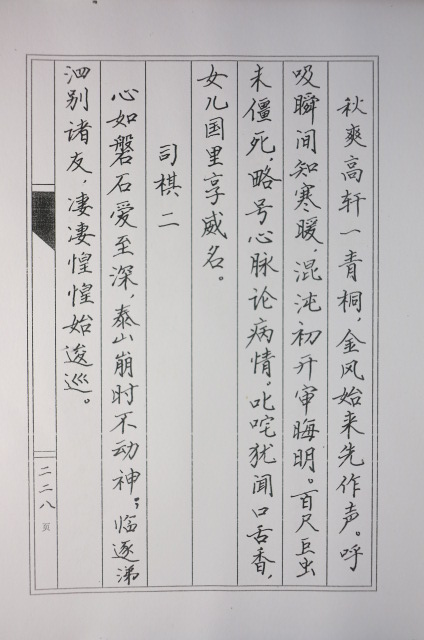 秋爽高轩一青桐，金风始来先作声。呼
吸瞬间知寒暖，混沌初开审晦明。百尺巨虫
未僵死，略号心脉论病情。叱咤犹闻口舌香，
女儿国里享威名。
司棋二
心如磐石爱至深，泰山崩时不动神；临逐涕
泗别诸友，凄凄惶惶始逡巡。
二二八页